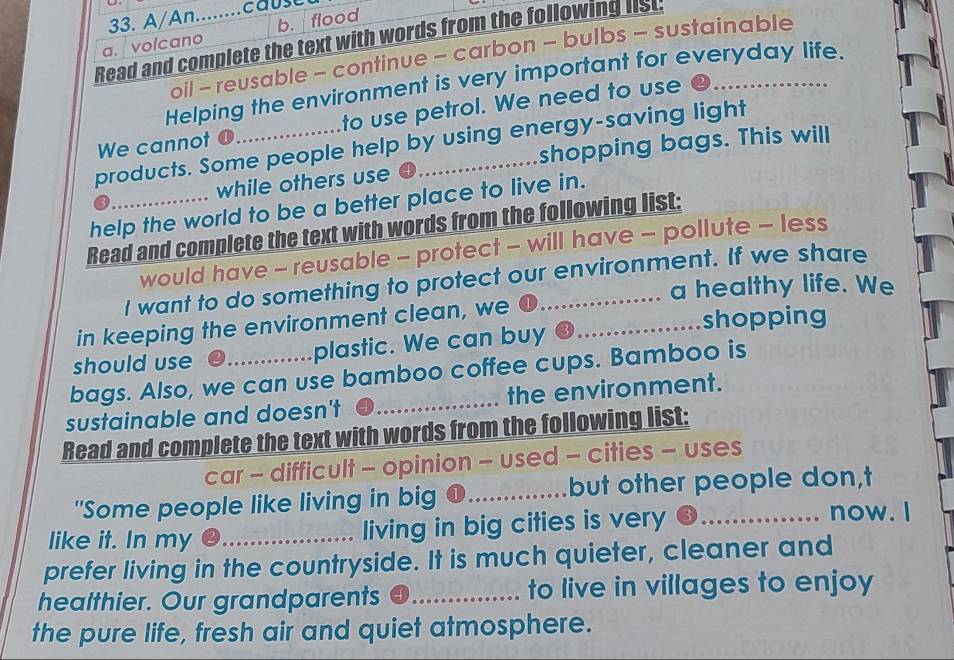 33. A/An........
a. volcano b. flood
Read and complete the text with words from the following list:
oil - reusable - continue - carbon - bulbs - sustainable
Helping the environment is very important for everyday life.
We cannot ❶..............to use petrol. We need to use ❷..............
products. Some people help by using energy-saving light
❸.............. while others use ❹..............shopping bags. This will
help the world to be a better place to live in.
Read and complete the text with words from the following list:
would have - reusable - protect - will have - pollute - less
I want to do something to protect our environment. If we share
in keeping the environment clean, we ❶.............. a healthy life. We
should use ❷............plastic. We can buy ❸..............shopping
bags. Also, we can use bamboo coffee cups. Bamboo is
sustainable and doesn't ❹.............. the environment.
Read and complete the text with words from the following list:
car - difficult - opinion - used - cities - uses
"Some people like living in big ❶..............but other people don,t
like it. In my ❷.............. living in big cities is very ❸.............. now. I
prefer living in the countryside. It is much quieter, cleaner and
healthier. Our grandparents ❹.............. to live in villages to enjoy
the pure life, fresh air and quiet atmosphere.